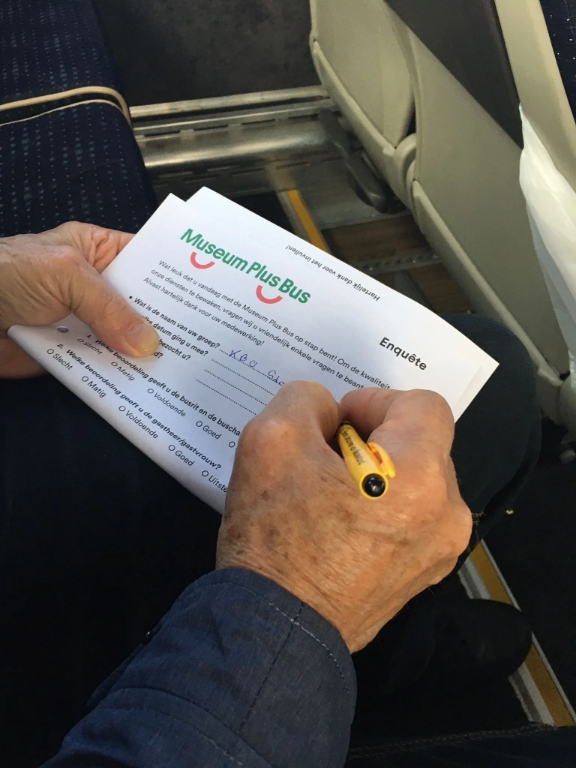 Hartelijk dank voor het invullen!
Museum Plus Bus
Enquête
Wat leuk dat u vandaag met de Museum Plus Bus op stap bent! Om de kwaliteit
onze diensten te bewaken, vragen wij u vriendelijk enkele vragen te
Alvast hartelijk dank voor uw medewerking!
• Wat is de naam van uw groep? KBO
datum ging u mee?
bezocht u?
beoordeling geeft u de busrit en de
Slecht Matig Voldoende Goed
2. Welke beoordeling geeft u de gastheer/gastvrouw?
Slecht Matig Voldoende Goed